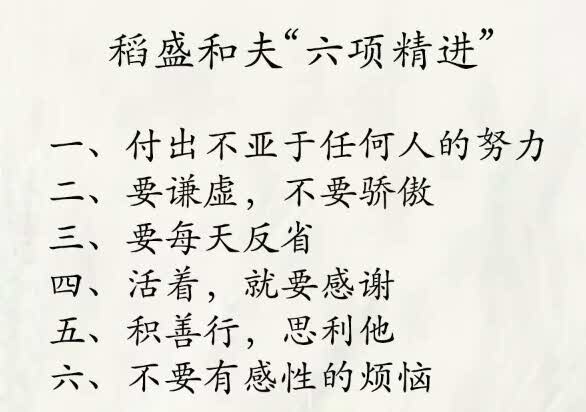 稻盛和夫“六项精进”
一、付出不亚于任何人的努力
二、要谦虚，不要骄傲
三、要每天反省
四、活着，就要感谢
五、积善行，思利他
六、不要有感性的烦恼